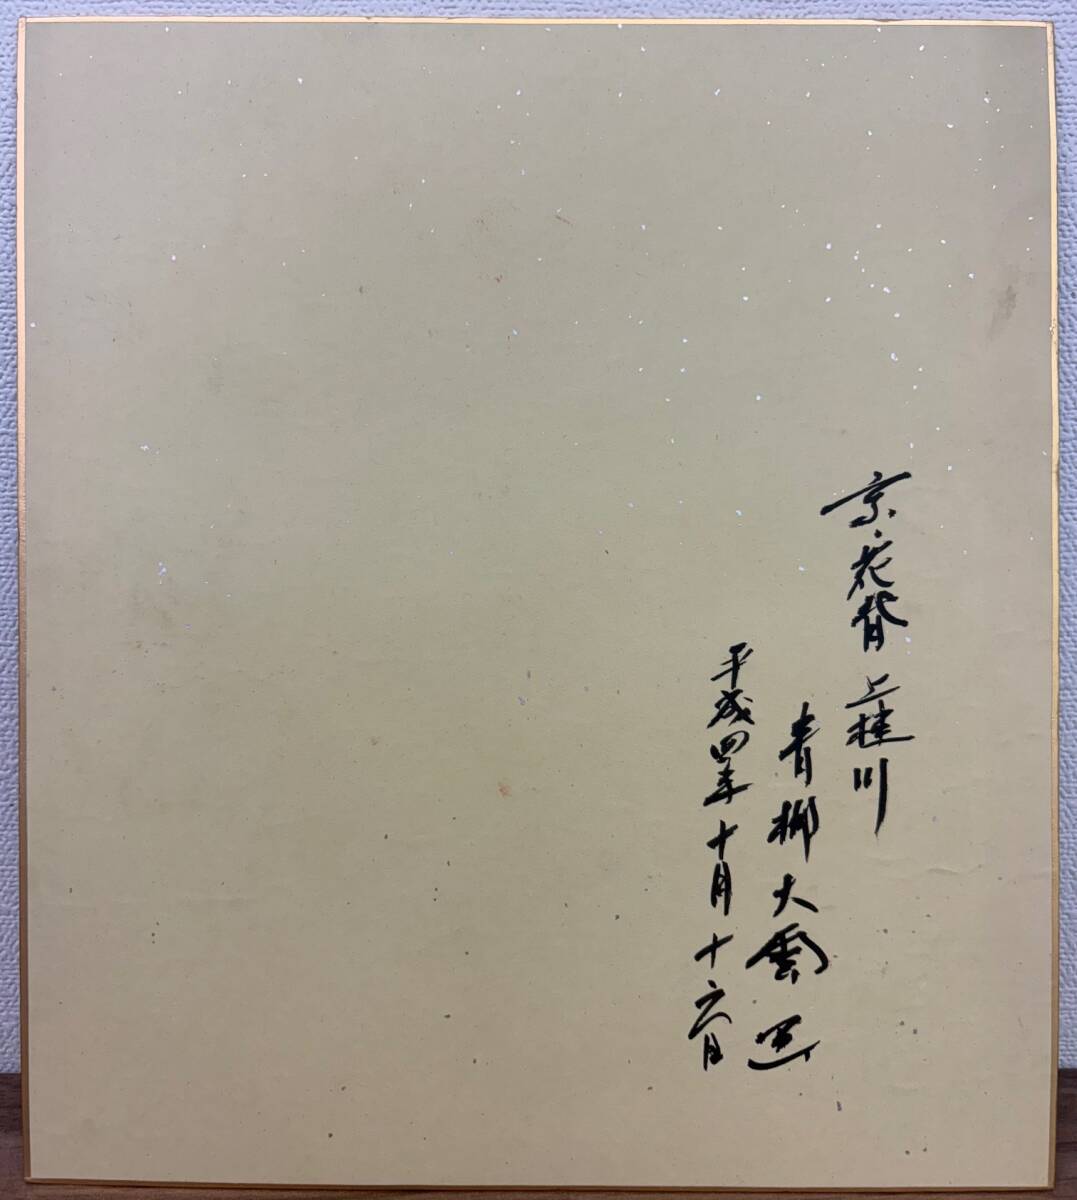 京・花背 上桂川
青柳大雲 写
平成四年十月十六日